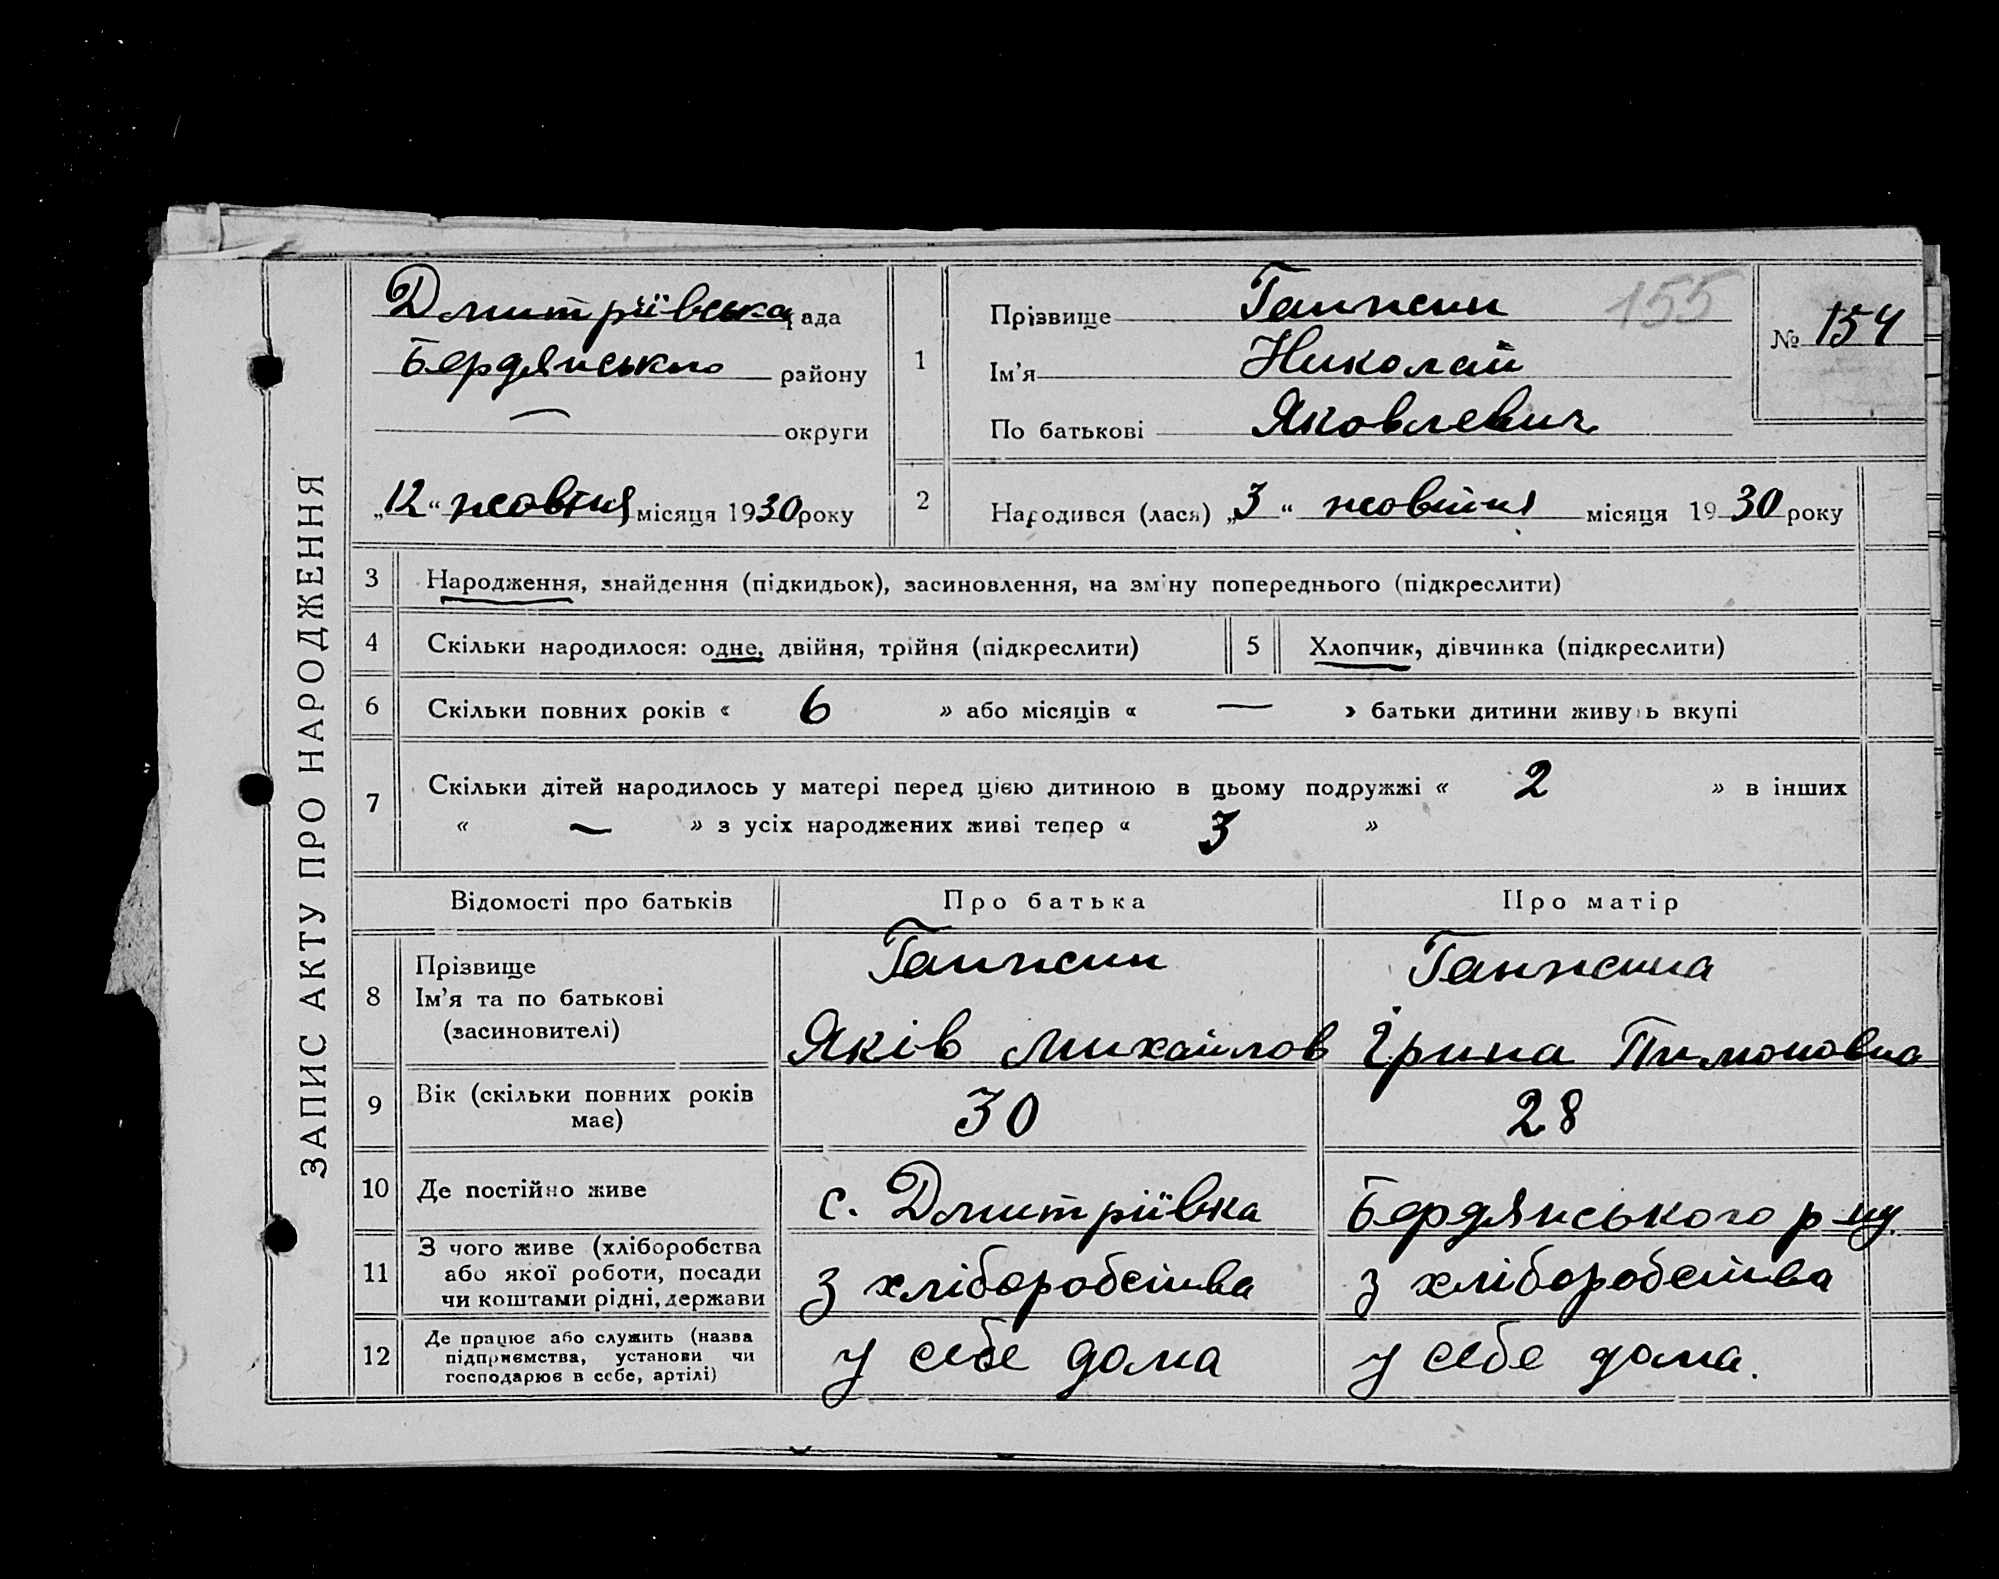 ЗАПИС АКТУ ПРО НАРОДЖЕННЯ
Дмитріївська рада
Бердянського району
— округи
„12“ жовтня місяця 1930 року
1
Прізвище Ганжин
Ім'я Николай
По батькові Яковлевич
155
№ 154
2
Народився (лася) „3“ жовтня місяця 1930 року
3 Народження, знайдення (підкидьок), засиновлення, на зміну попереднього (підкреслити)
4 Скільки народилося: одне, двійня, трійня (підкреслити)
5 Хлопчик, дівчинка (підкреслити)
6 Скільки повних років « 6 » або місяців « — » батьки дитини живуть вкупі
7 Скільки дітей народилось у матері перед цією дитиною в цьому подружжі « 2 » в інших
« — » з усіх народжених живі тепер « 3 »
Відомості про батьків Про батька Про матір
8 Прізвище
Ім'я та по батькові
(засиновителі)
Ганжин
Яків Михайлов
Ганжина
Ірина Тимоновна
9 Вік (скільки повних років
має)
30
28
10 Де постійно живе
с. Дмитріївка
Бердянського р-ну.
11 З чого живе (хліборобства
або якої роботи, посади
чи коштами рідні, держави
з хліборобства
з хліборобства
12 Де працює або служить (назва
підприємства, установи чи
господарює в себе, артілі)
у себе дома
у себе дома.